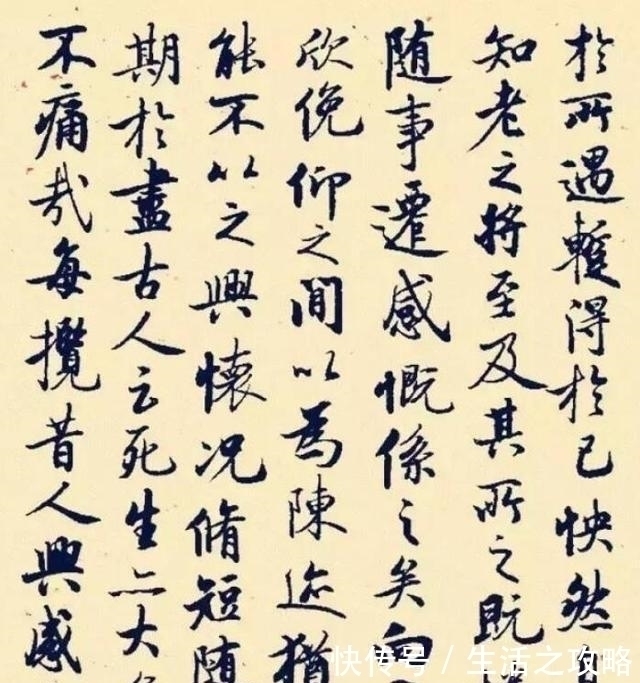 於所遇蹔得於己怏然
知老之將至及其所之既
随事遷感慨係之矣向
欣俛仰之間以為陳迹猶
能不以之興懷况脩短随
期於盡古人云死生亦大
不痛哉每攬昔人興感
快传号 / 生活之攻略